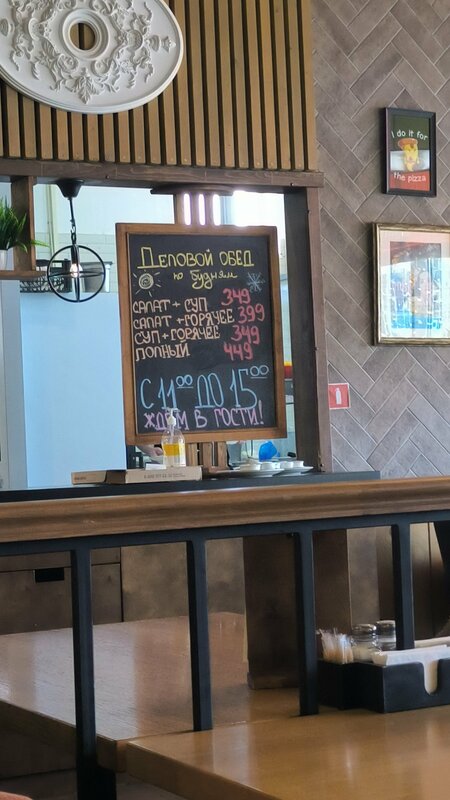 ДЕЛОВОЙ ОБЕД
по будням
САЛАТ + СУП 349
САЛАТ + ГОРЯЧЕЕ 399
СУП + ГОРЯЧЕЕ 349
ПОЛНЫЙ 449
С 11⁰⁰ ДО 15⁰⁰
ЖДЁМ В ГОСТИ!
I do it for
the pizza